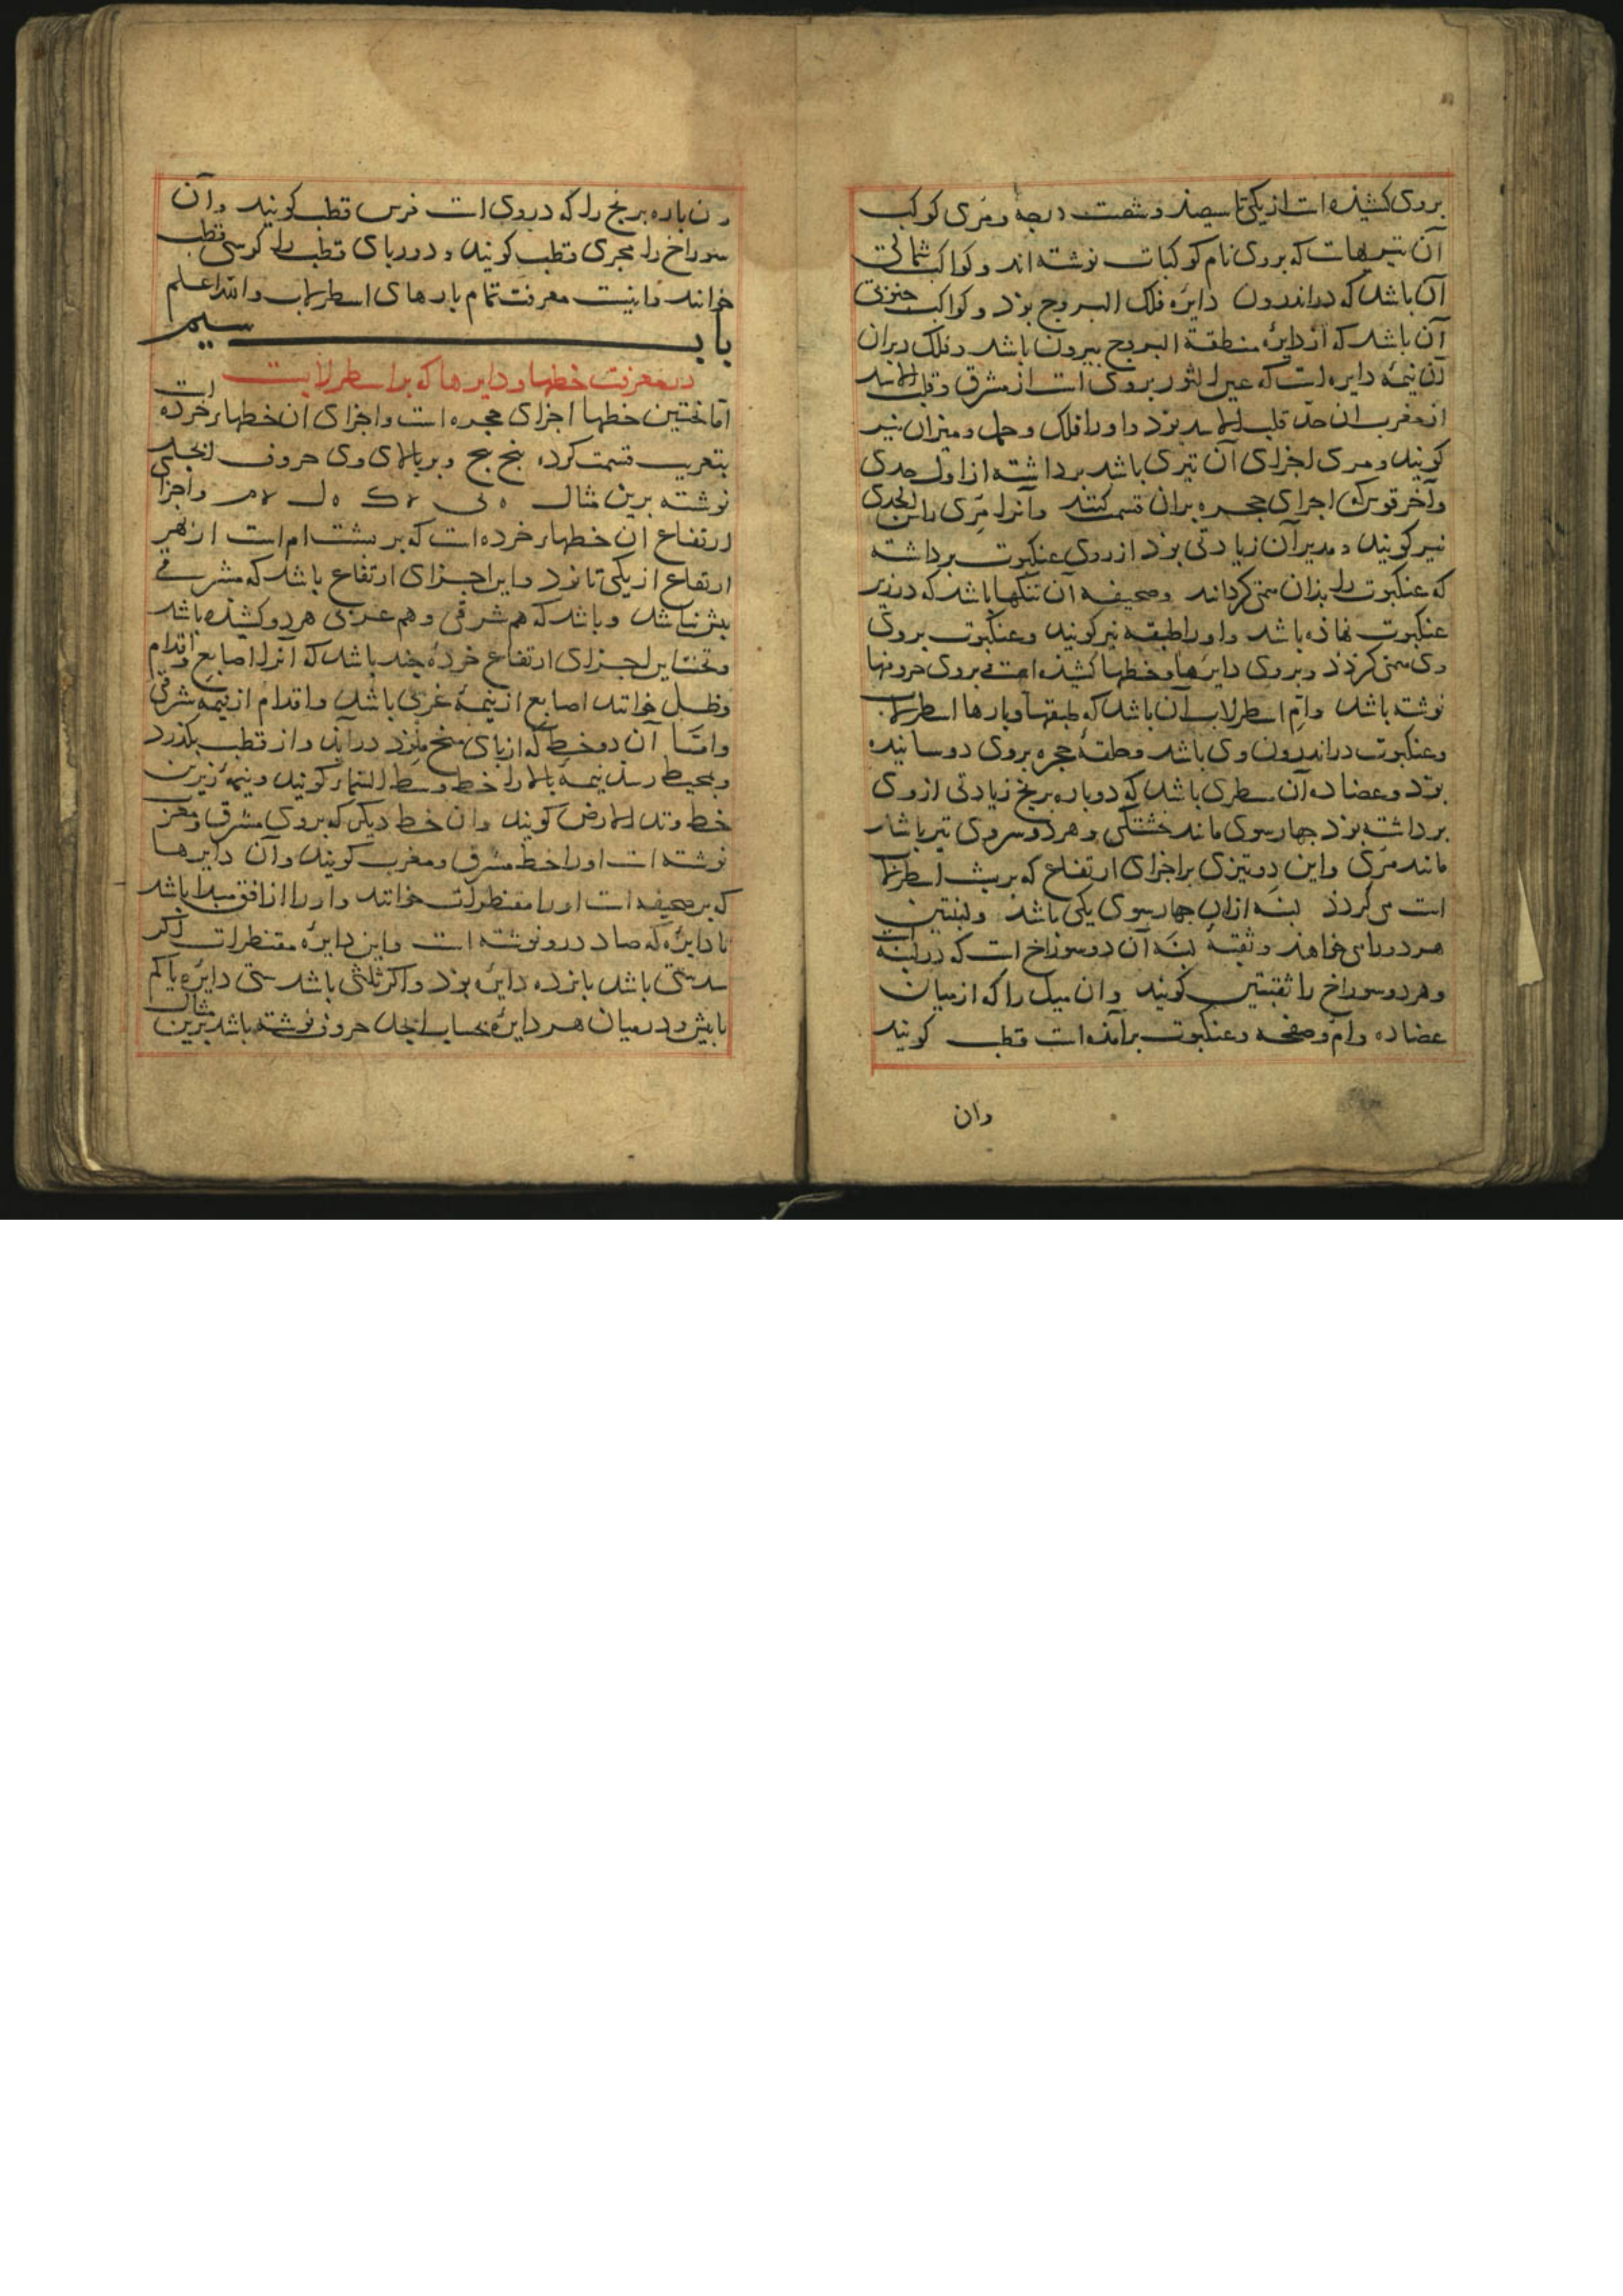 بروی کشیذه است از یکی تا سیصذ و شصت درجه و مری کوکب
آن تیزیهاست که بروی نام کوکبات نوشته اند و کواکب شمالی
آن باشد که در اندرون دایره فلک البروج بوذ و کواکب جنوبی
آن باشد که از دایرهٔ منطقة البروج بیرون باشد و فلک
آن نیمهٔ دایره است که عین الثور بروی است از مشرق و قلب الاسد
از مغرب ان حدّ قلب الاسد بوذ و او را فلک و حمل و میزان نیز
کویند و مری اجزای آن تیزی باشد برداشته از اول جدی
و آخر قوس که اجزای حجره بران قسمت کنند و آنرا مری راس الجدی
نیز کویند و مدیر آن زیادتی بوذ از روی عنکبوت برداشته
که عنکبوت را بذان همی کرداند و صحیفه آن تنکها باشد که در زیر
عنکبوت نهاذه باشد و او را طبقه نیز کویند و عنکبوت بروی
وی همی کردذ و بروی دایرها و خطها کشیذه است بروی حرونها
نوشته باشد و ام اسطرلاب آن باشد که طبقها و بارها اسطرلاب
و عنکبوت در اندرون وی باشد و حلقهٔ حجره بروی دوسانیده
بوذ و عضاده آن سطری باشد که دو باره برنج زیادتی از وی
برداشته بوذ چهار سوی مانند خشتکی و هر دو سر وی تیز باشد
مانند مری و این دو تیزی بر اجزای ارتفاع که بر پشت اسطرلاب
است می کردذ لبنه ازان چهار سوی یکی باشد و لبنتین
هر دو را می خواهند و ثقبهٔ لبنه آن دو سوراخ است که در لبنه است
و هر دو سوراخ را ثقبتین کویند و ان میل را که از میان
عضاده و ام و صفحه و عنکبوت برآمذه است قطب کویند
وان
و ن باره برنج را که در وی است فرس قطب کویند و آن
سوراخ را مجری قطب کویند و دور بای قطب را کرسی قطب
خوانند و اینست معرفت تمام بارهای اسطرلاب والله اعلم
باب سیم
در معرفت خطها و دایرها که بر اسطرلابست
اما نخستین خطها اجزای حجره است و اجزای ان خطهاء خرده است
بتقریب قسمت کرده بنج بنج و بر بالای وی حروف ابجد
نوشته برین مثال ه ی یه ک که ل له م و اجزا
ارتفاع ان خطهاء خرده است که بر بشت ام است از بهر
ارتفاع از یکی تا نوذ و این اجزای ارتفاع باشد که مشرقی
بیش نباشد و باشد که هم شرقی و هم غربی هر دو کشیده باشد
و تحت این اجزای ارتفاع خردهٔ چند باشد که آنرا اصابع و اقدام
و ظل خوانند اصابع از نیمهٔ غربی باشد و اقدام از نیمهٔ شرقی
و امّا آن دو خط که از بای در آید و از قطب بکذرد
و بمحیط رسد نیمهٔ بالا را خط وسط السّماء کویند و نیمهٔ زیرین
خط وتد الارض کویند و ان خط دیکر که بروی مشرق و مغرب
نوشته است او را خط مشرق و مغرب کویند و آن دایرها
که بر صحیفه است او را مقنطرات خوانند و او را از افق مبدا باشد
تا دایره که صاد درو نوشته است و این دایره مقنطرات اکر
سدسی باشد بانزده دایره بوذ و اکر ثلثی باشد سی دایره یا کم
یا بیش و در میان هر دایره بحساب ابجد حروف نوشته باشد برین مثال